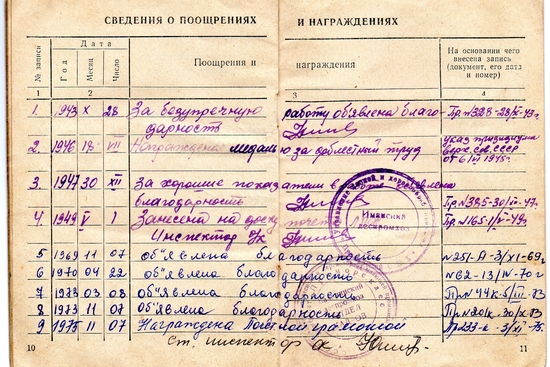 СВЕДЕНИЯ О ПООЩРЕНИЯХ И НАГРАЖДЕНИЯХ
№ записи Дата Поощрения и награждения На основании чего внесена запись (документ, его дата и номер)
Год Месяц Число
1 2 3 4
1. 1943 X 28 За безупречную работу объявлена благо- Пр №328-28/X-43г.
дарность
2. 1946 18 VII Награждена медалью за доблестный труд указ президиума
Верх. Сов. СССР
от 6/VI 1945г.
3. 1947 30 XII За хорошие показатели в работе объявлена
благодарность Пр №385-30/XII-47г.
4. 1949 I 1 Занесена на доску почета Пр №165-1/V-49г.
Инспектор ОК
Иманский
леспромхоз
5 1969 11 07 объявлена благодарность №251-А-3/XI-69г
6 1970 04 22 объявлена благодарность №62-13/IV-70г
7 1973 03 08 объявлена благодарность Пр №44к-5/III-73
8 1973 11 07 объявлена благодарность Пр №201/к-30/X-73
9 1975 11 07 Награждена Почетной грамотой №233-к-3/XI-75.
Ст. инспектор ОК
10 11